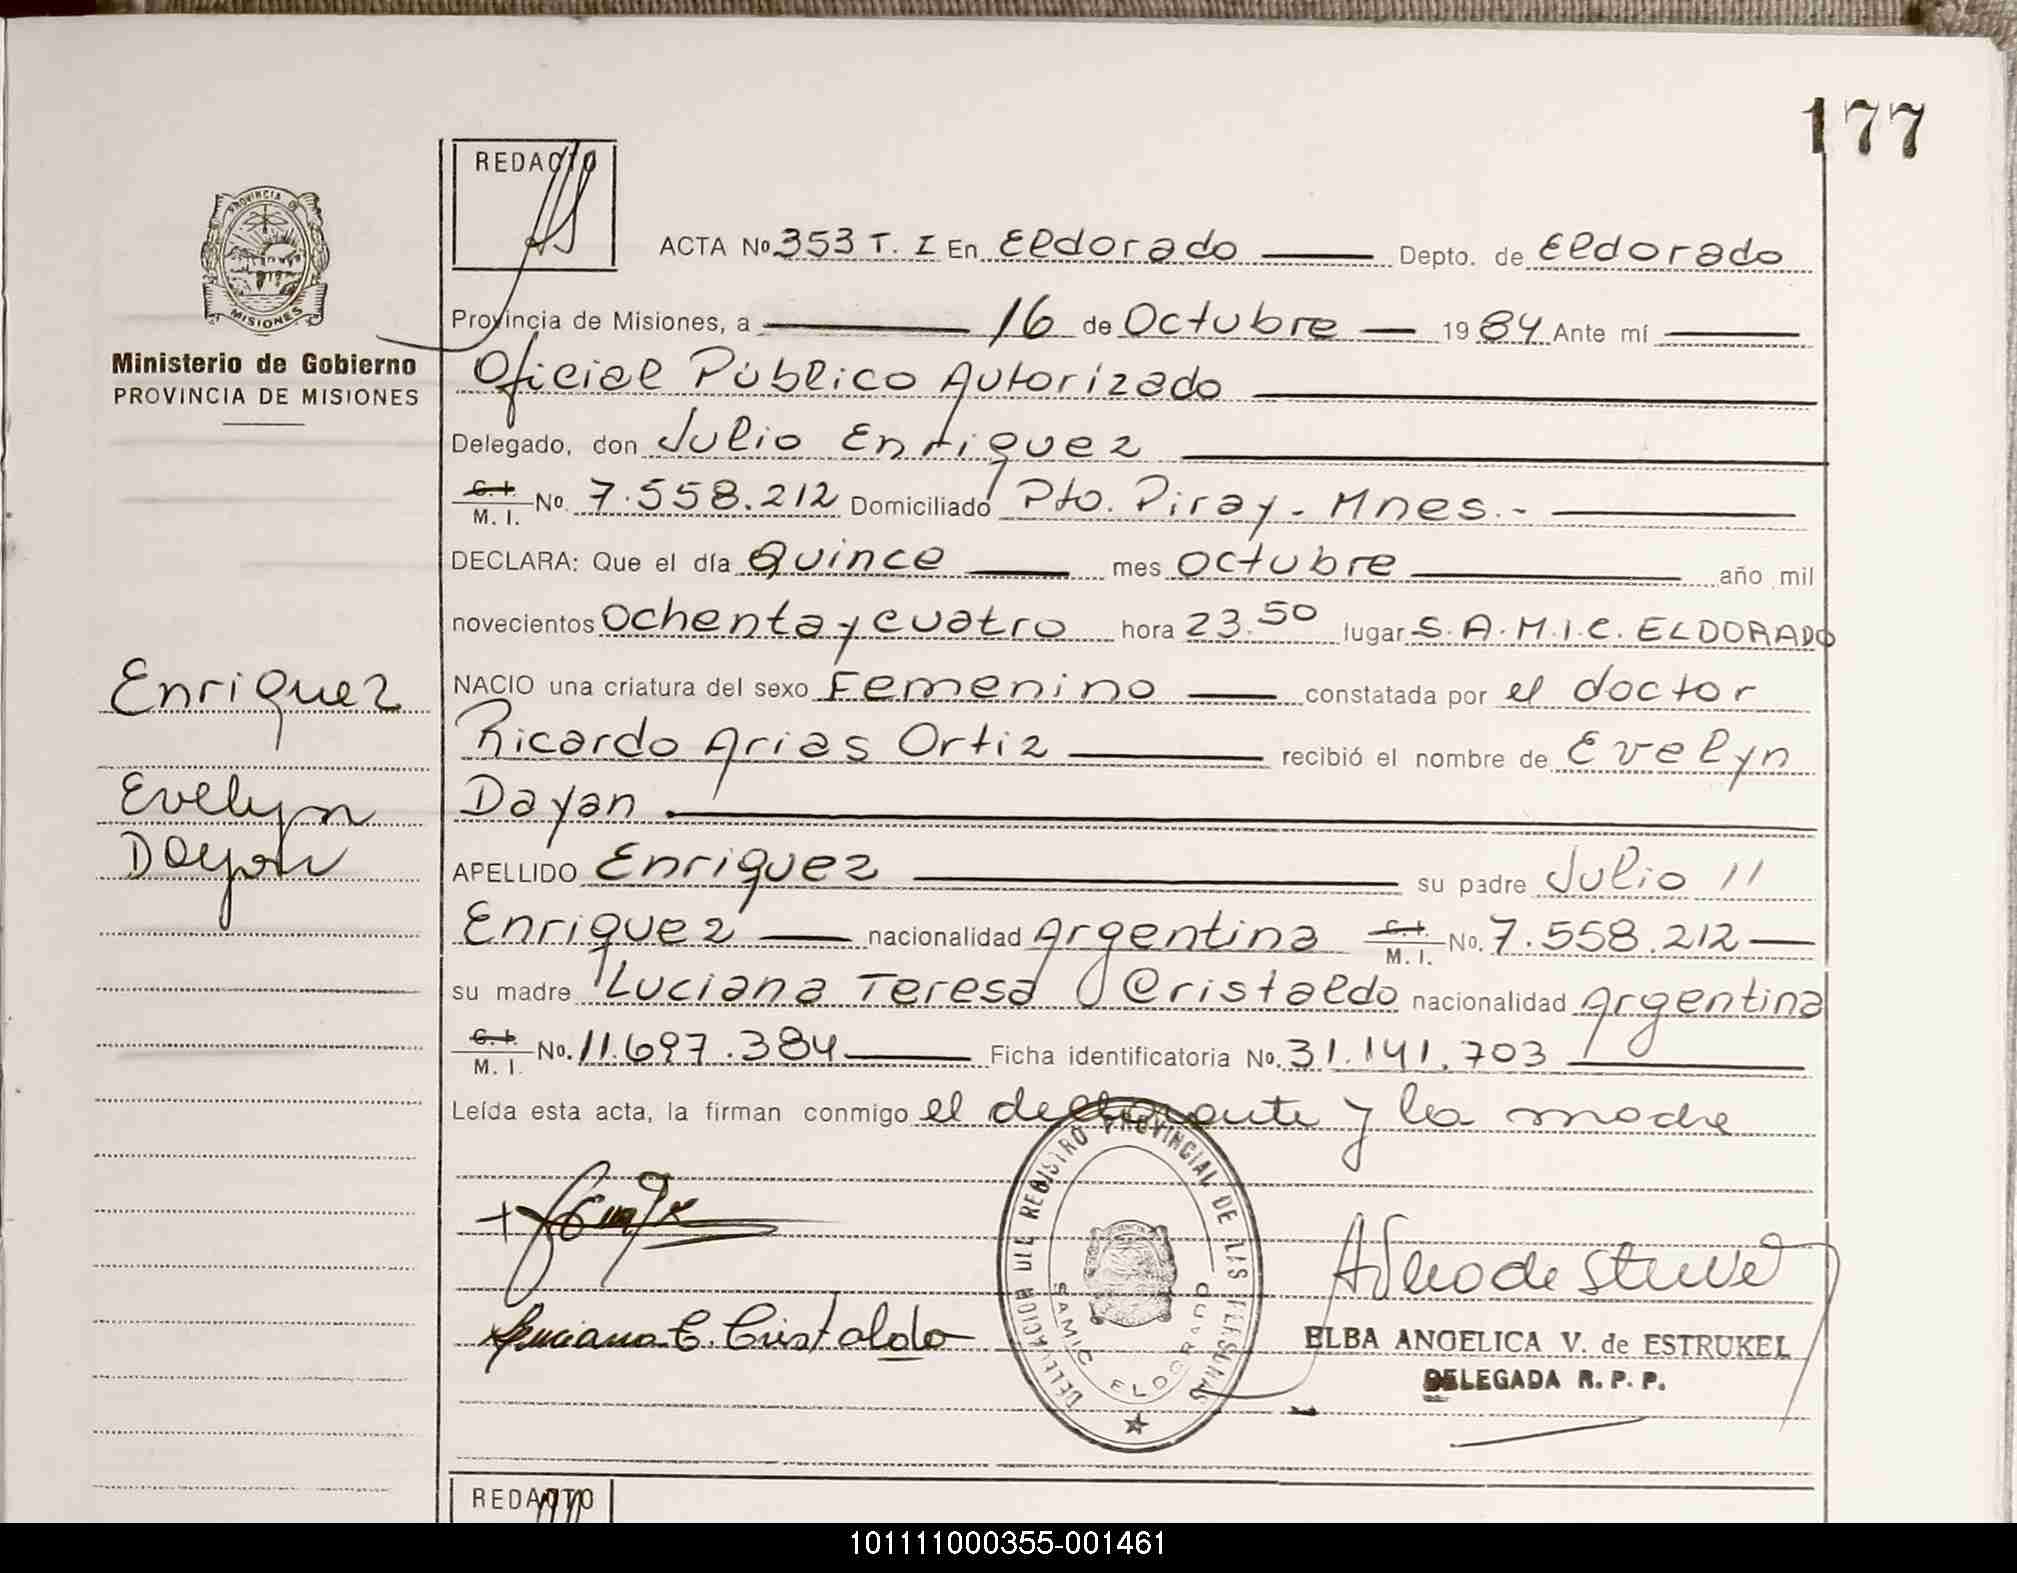 177
REDACTO
PROVINCIA DE
MISIONES
Ministerio de Gobierno
PROVINCIA DE MISIONES
ACTA No. 353 T. I En Eldorado Depto. de Eldorado
Provincia de Misiones, a 16 de Octubre 1984 Ante mí
Oficial Público Autorizado
Delegado, don Julio Enriquez
C. I. M. I. No. 7.558.212 Domiciliado Pto. Piray - Mnes.-
DECLARA: Que el día Quince mes Octubre año mil
novecientos Ochenta y cuatro hora 23.50 lugar S.A.M.I.C. ELDORADO
Enriquez
NACIO una criatura del sexo Femenino constatada por el doctor
Ricardo Arias Ortiz recibió el nombre de Evelyn
Evelyn
Dayan
Dayan
APELLIDO Enriquez su padre Julio //
Enriquez nacionalidad Argentina C. I. M. I. No. 7.558.212
su madre Luciana Teresa Cristaldo nacionalidad Argentina
C. I. M. I. No. 11.697.384 Ficha identificatoria No. 31.141.703
Leída esta acta, la firman conmigo el declarante y la madre
DELEGACION DEL REGISTRO PROVINCIAL DE LAS PERSONAS
SAMIC ELDORADO
Luciana C. Cristaldo
ELBA ANGELICA V. de ESTRUKEL
DELEGADA R. P. P.
REDACTO
101111000355-001461